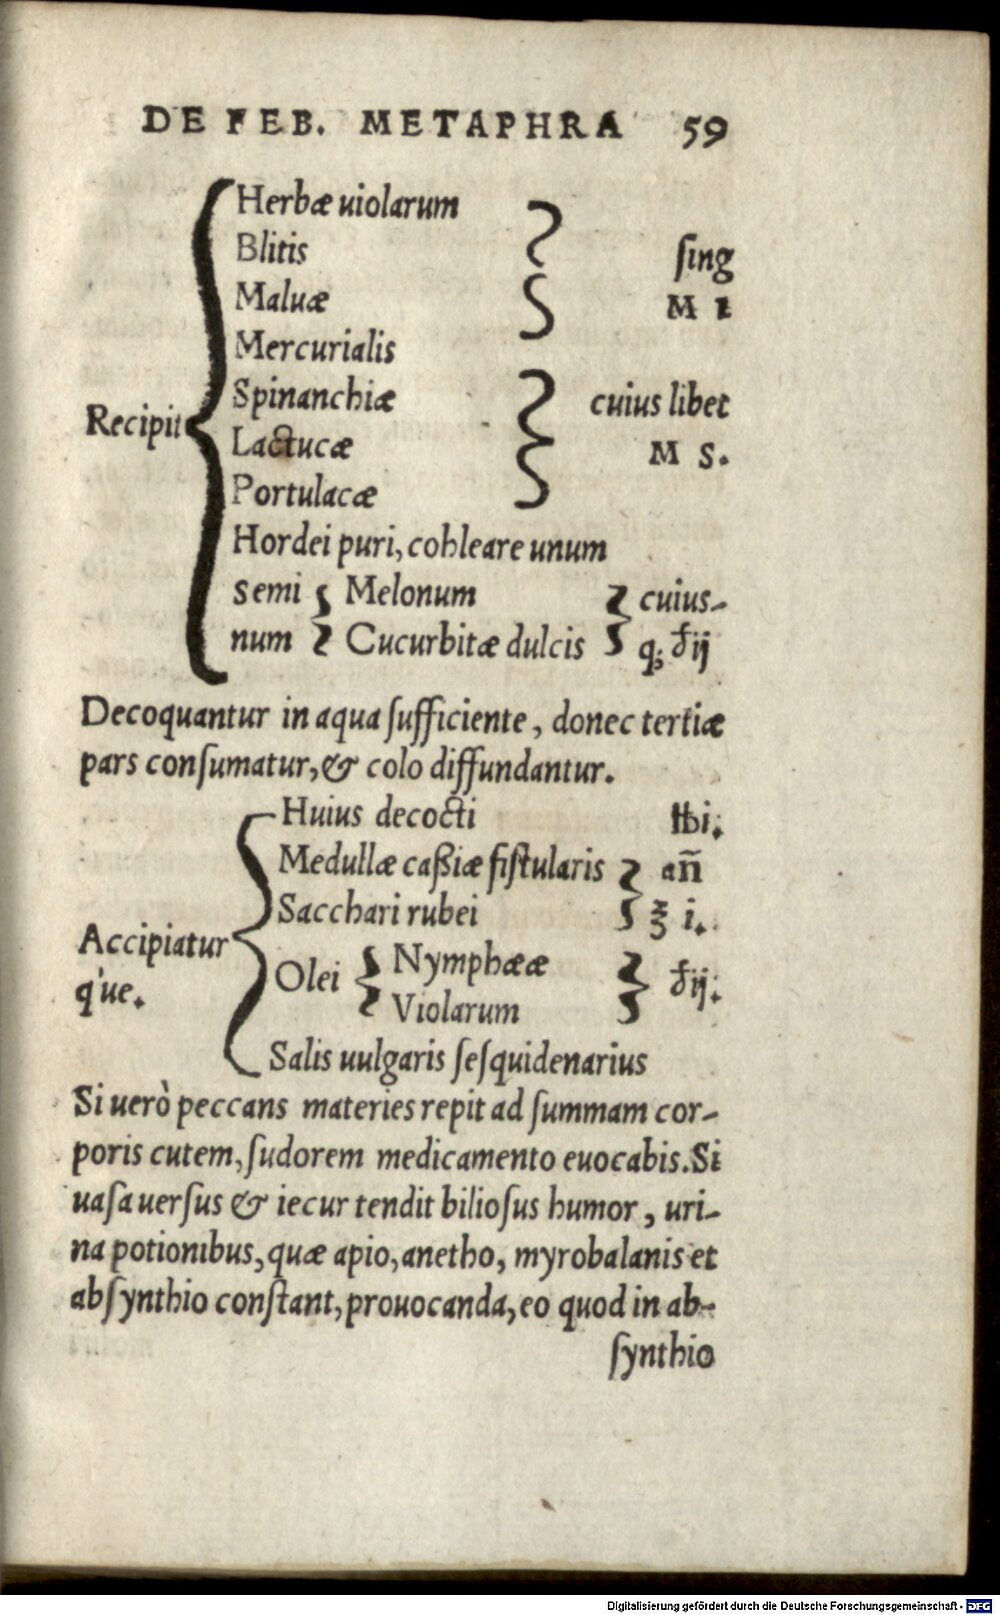 DE FEB. METAPHRA 59
Herbæ uiolarum
Blitis ſing
Maluæ M I
Mercurialis
Spinanchiæ cuius libet
Recipit Lactucæ M S.
Portulacæ
Hordei puri, cohleare unum
Semi Melonum cuius-
num Cucurbitæ dulcis q; ʒij
Decoquantur in aqua ſufficiente, donec tertiæ
pars conſumatur, & colo diffundantur.
Huius decocti ℔i.
Medullæ caßiæ fiſtularis añ
Sacchari rubei ℥ i.
Accipiatur Olei Nymphææ ʒij.
q́ue. Violarum
Salis uulgaris ſeſquidenarius
Si uerò peccans materies repit ad ſummam cor-
poris cutem, ſudorem medicamento euocabis. Si
uaſa uerſus & iecur tendit bilioſus humor, uri-
na potionibus, quæ apio, anetho, myrobalanis et
abſynthio conſtant, prouocanda, eo quod in ab-
ſynthio
Digitalisierung gefördert durch die Deutsche Forschungsgemeinschaft - DFG